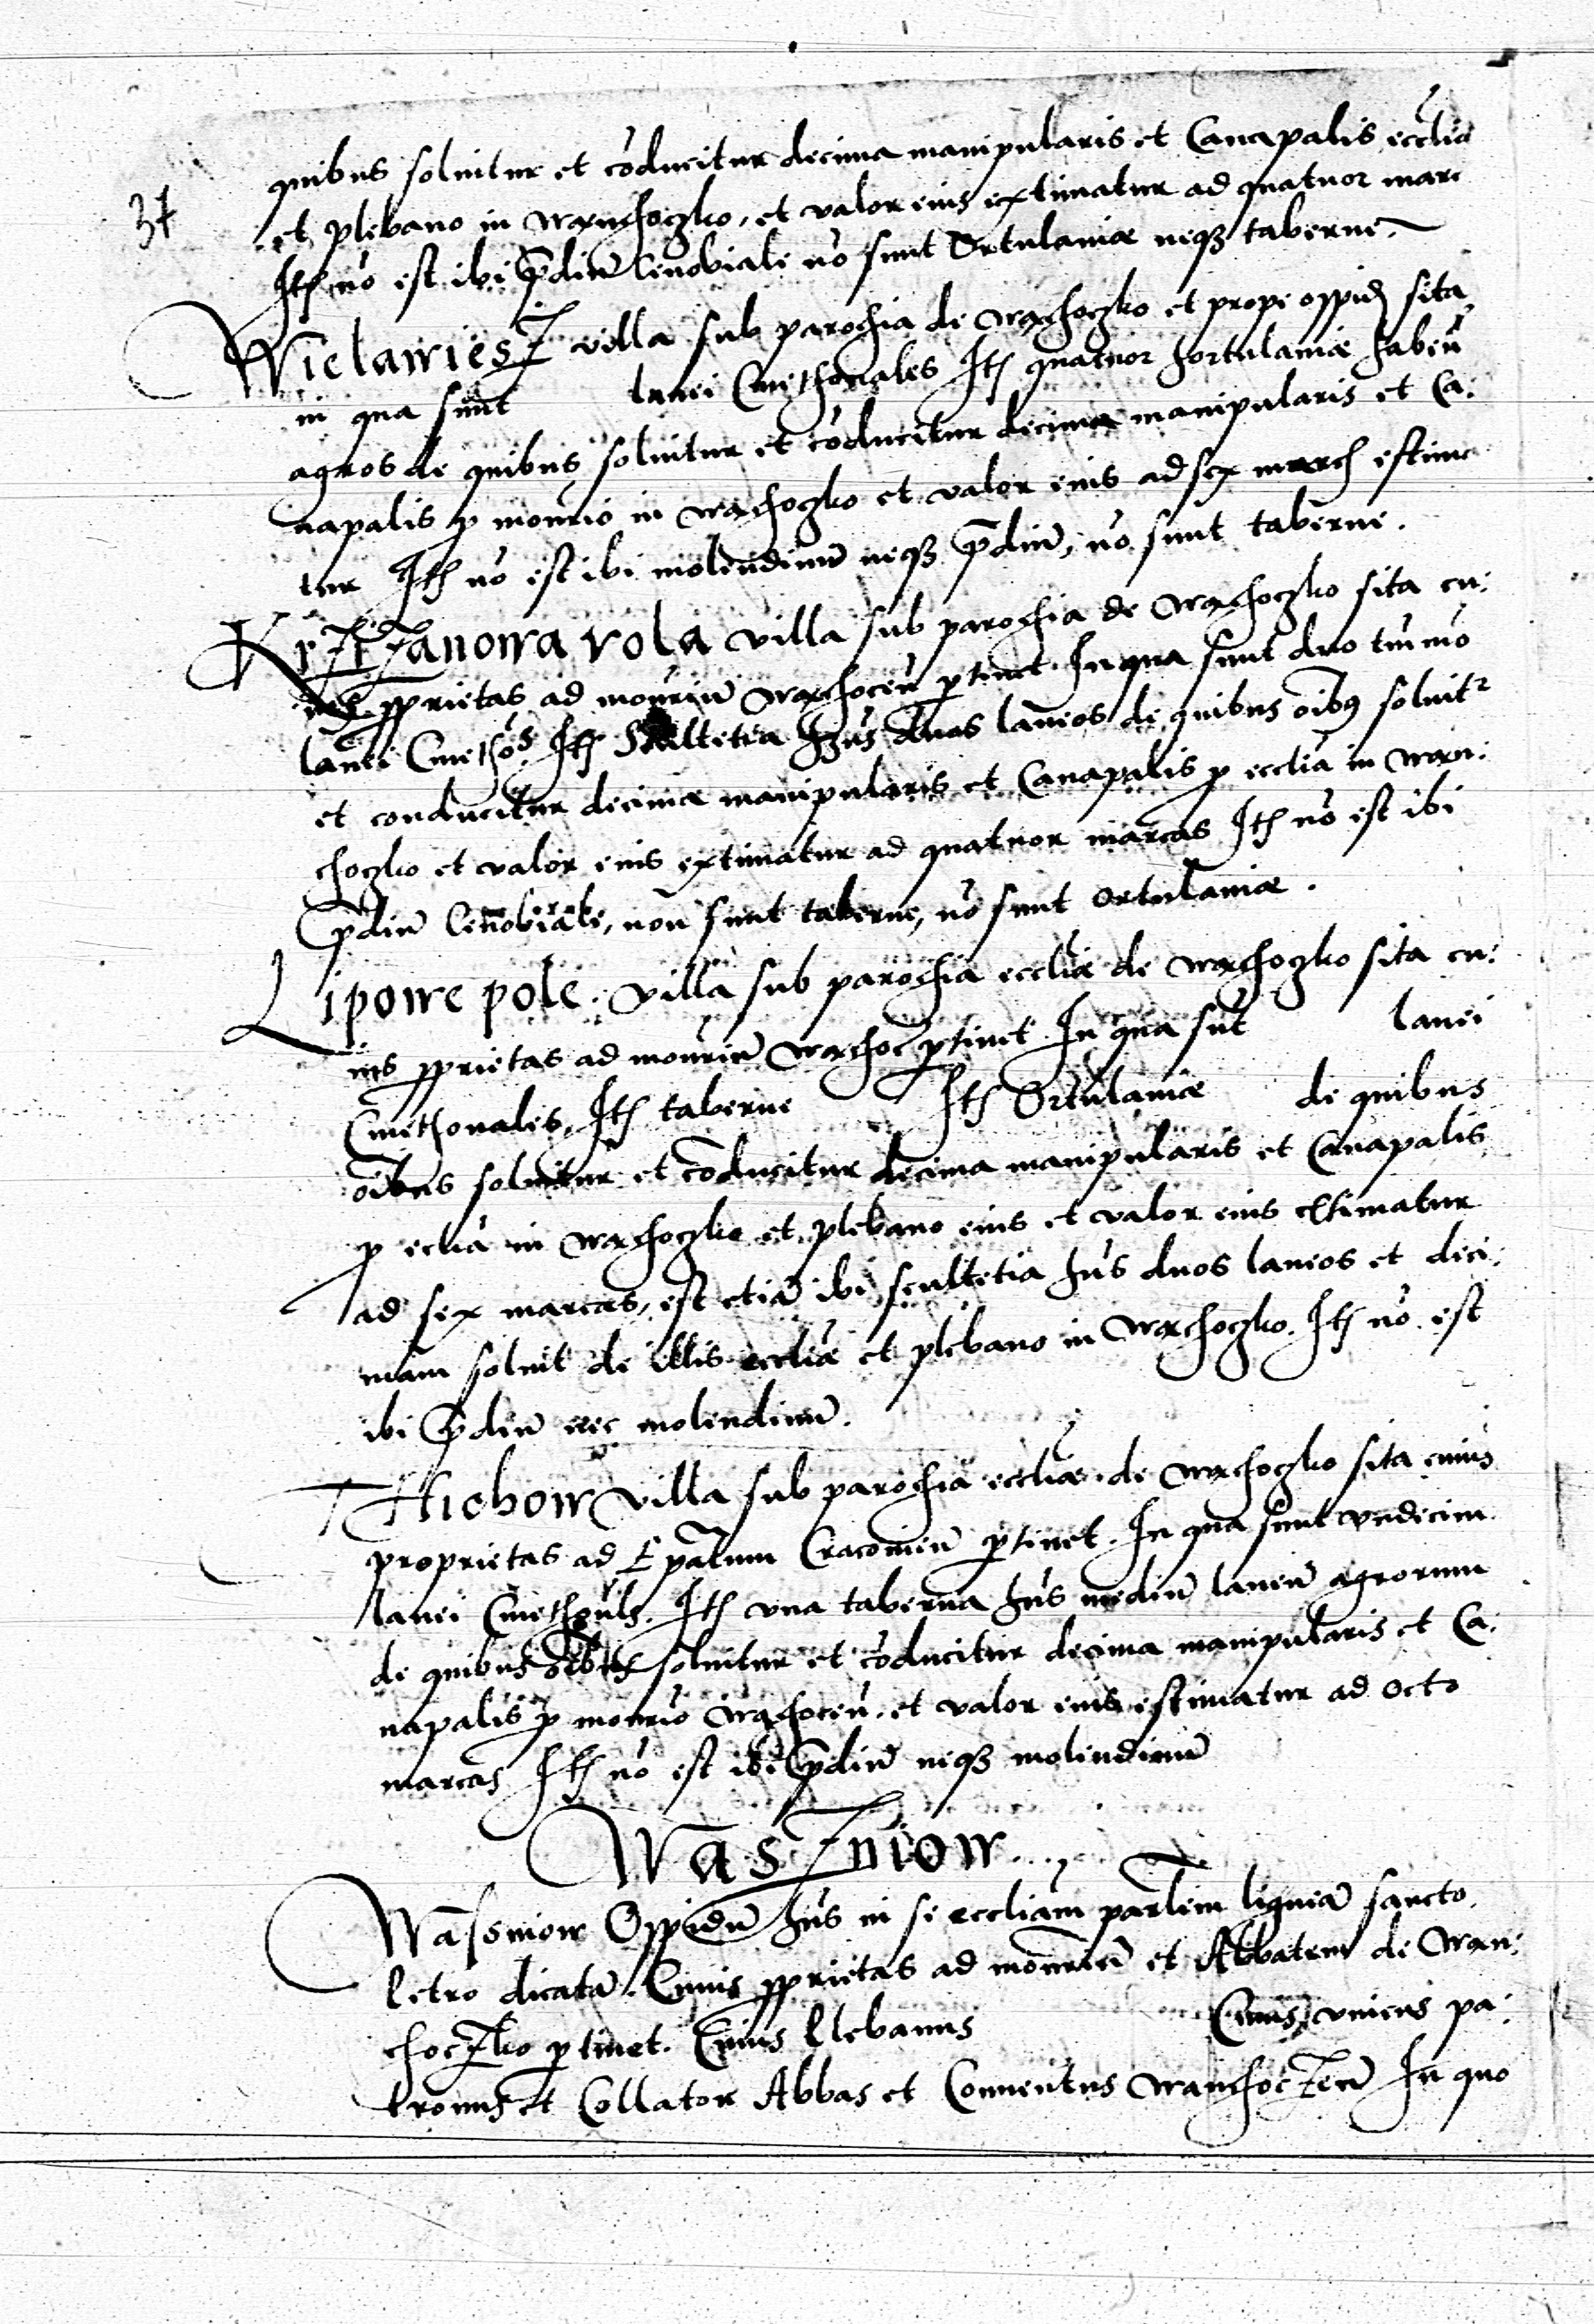 quibus soluitur et cōducitur decima manipularis et Canapalis eccl̄ia
37
et plebano in wąnchoczko, et valor eius extimatur ad quatuor marc
Itḥ nō est ibi p̄diū Cenobiale nō sunt Ortulaniæ neqȝ taberne.
Wielawiesz villa sub parochia de wąchoczko et prope oppid sita
in qua sunt lanei Cmethonales Itḥ quatuor hortulaniæ haben̄
agros de quibus soluitur et cōducitur decima manipularis et Ca:
napalis p monrio in wąchoczko et valor eius ad sex march estima
tur Itḥ nō est ibi molendinū neqȝ p̄diū, nō sunt taberne.
Krzizanowa vola villa sub parochia de wąchoczko sita cu:
ius pprietas ad monriū wąchocen̄ ptinet. In qua sunt duo tm̄ mō
lanei Cmethōs. Itḥ Scultetia hn̄s duos laneos de quibus oibꝰ soluitr
et conducitur decima manipularis et Canapalis p eccliā in wąn:
choczko et valor eius extimatur ad quatuor marcas Itḥ nō est ibi
p̄diū Cenobiale, non sunt taberne, nō sunt Ortulaniæ.
Lipowe pole. villa sub parochia eccliæ de wąchoczko sita cu:
ius pprietas ad monriū wąchoc ptinet. In qua sūt lanei
Cmethonales, Itḥ taberne Itḥ Ortulaniæ de quibus
oībus soluitur et cōducitur decima manipularis et Canapalis
p ecliā in wąchoczko et plebano eius et valor eius extimatur
ad sex marcas, est etiā ibi scultetia hn̄s duos laneos et deci:
mam soluit de illis eccliæ et plebano in wąchoczko. Itḥ nō est
ibi p̄diū nec molendinū.
Thichow villa sub parochia eccliæ de wąchoczko sita cuius
proprietas ad Ep̄atum Cracouien̄ ptinet. In qua sunt vndecim
lanei Cmethōnls. Itḥ vna taberna hn̄s mediū laneū agrorum
de quibus oībus soluitur et cōducitur decima manipularis et Ca:
napalis p monrio wąchocen̄, et valor eius estimatur ad octo
marcas Itḥ nō est ibi p̄diū neqȝ molendinū
Waszniow
Wassniow Oppidū hn̄s in se eccliam parlem ligneā sancto
Petro dicatā. Cuius pprietas ad monriū et Abbatem de wan:
choczko ptinet. Cuius Plebanus Cuius vnicus pa:
tronus et Collator Abbas et Conuentus wanchoczen̄ In quo